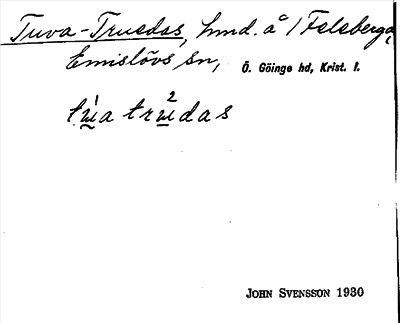 Tuva-Trusdas, hmd. å / Felsberga,
Emislövs sn, Ö. Göinge hd, Krist. l.
tu̲a tru̲das
JOHN SVENSSON 1930